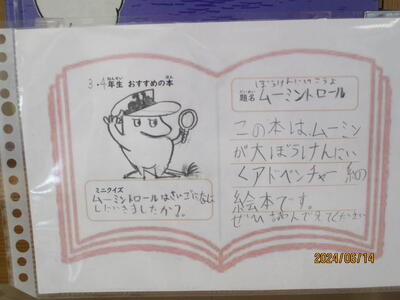 3・4年生 おすすめの本
ミニクイズ
ムーミントロールはさいごになに
しにいきましたか?
ぼうけんにいこうよ
題名 ムーミントロール
この本は、ムーミン
が大ぼうけんにい
くアドベンチャー系の
絵本です。
ぜひ読んでみてください
2024/06/14